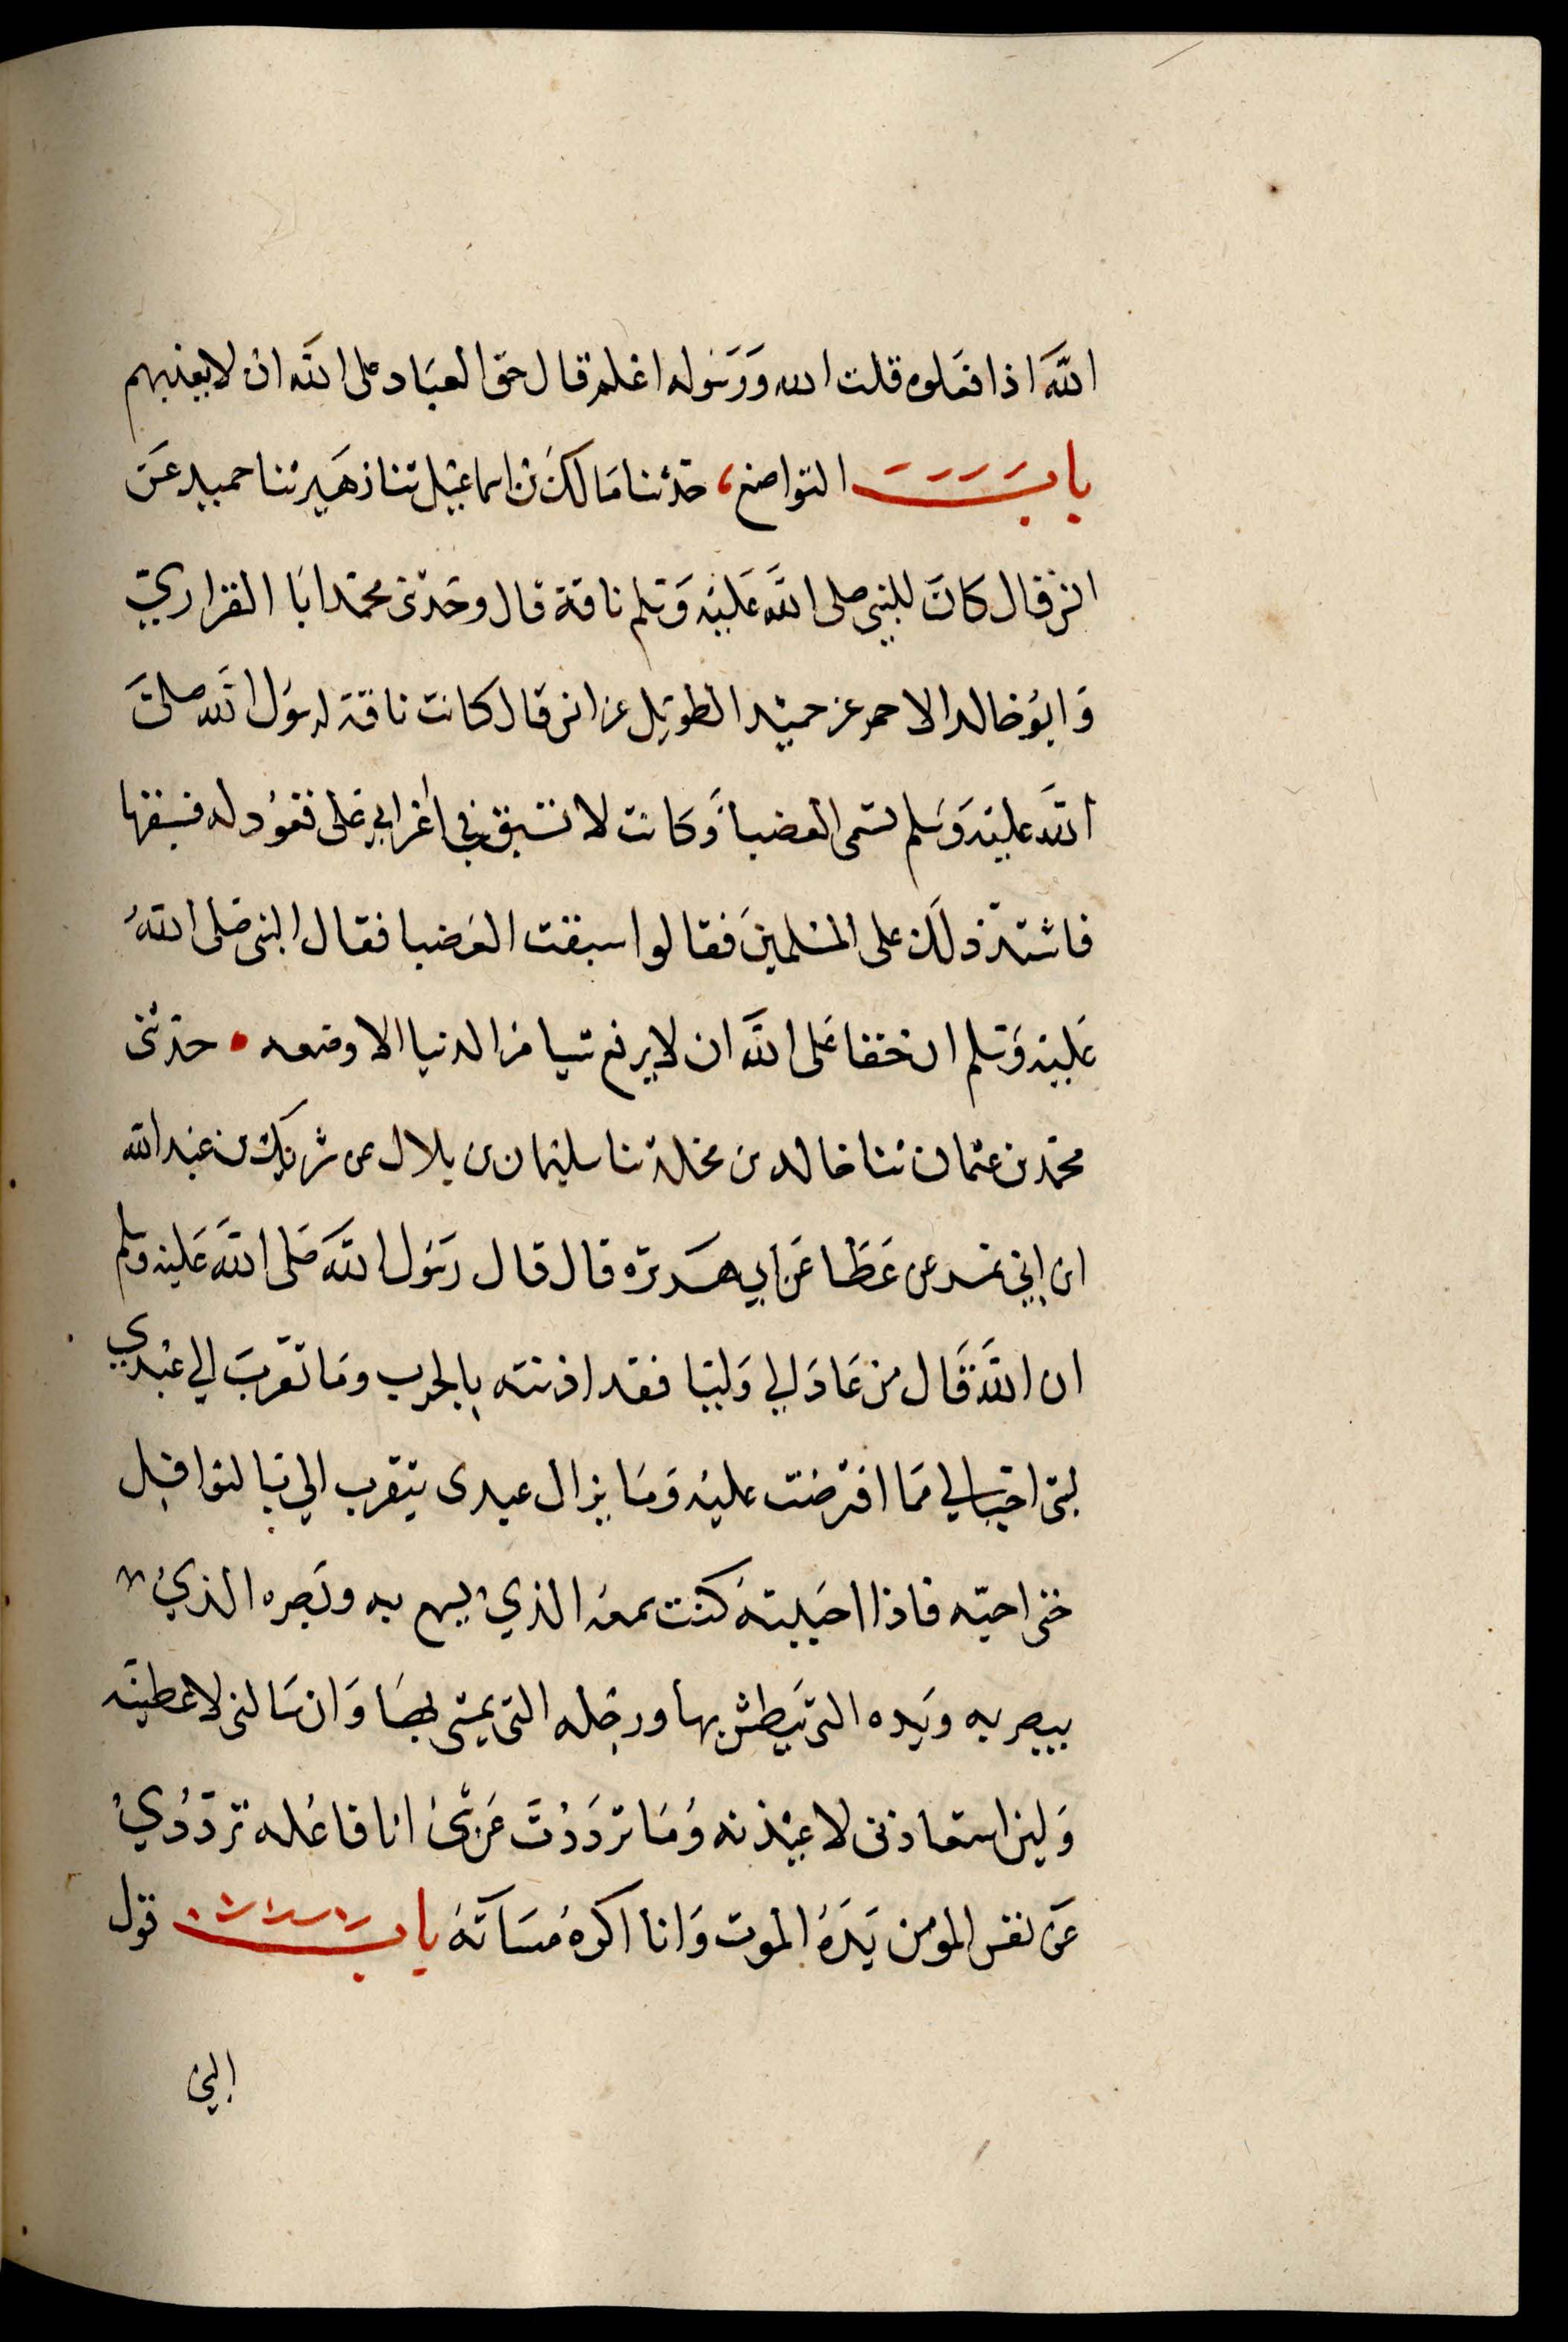 اللَّه اذا فعلوه قلت الله وَرَسُوله اعلم قال حق العبَاد على اللَّه ان لا يعذبهم
باب التواضع، حدثنا مَالك بن اسماعيل ثنا زهَير ثنا حميد عَن
انس قال كانَ للنبي صلى اللَّه عَليْه وَسلم ناقة قال وحَدثنى محمّد ابَا الفزاريّ
وَابوُ خالد الاحمر عن حميْد الطويل عن انس قال كانت ناقة لرسَول اللَّه صلىَّ
اللَّه عليْه وَسَلم تسمى العضباَ وَكانت لا تسْبق فجا أعْرابي عَلى قعوُد له فسبقها
فاشتدّ ذلَك على المسْلمينَ فقالوا سبقت العَضبا فقال النبى صَلى اللهُ
عَليْه وَسَلم ان حقا عَلى اللَّه ان لا يرفع شيا من الدنيا الا وضعه • حدثنى
محمّد بن عثمان ثنا خالد بن مخلد ثنا سليْمان بن بلال عن شريْك بن عبْد الله
ابن ابي نمر عن عَطَا عَن ابي هريرة قال قال رَسَول اللَّه صَلى اللَّه عَليْه وسلم
ان اللَّه قَال من عَادَ لي وَليّا فقد اذنته بالحرب ومَا تقرّبَ الي عبْدي
بشى احَبّ الي مَما افترضْت عليْه وَمَا يزال عبدى يتقرب الي بَالنوافِل
حتى احبّه فاذا احَببتهُ كنْت سمعهُ الذي يسمع به وبَصره الذيْ
يبصر به ويَده التى يَبطش بها ورجْله التى يمشى بهَا وَان سَالنى لاعطينَّه
وَلين استعاذنى لاعيْذنه وُمَا تردَدْتَ عَن شئ انا فاعُله تردّدُيْ
عَن نفس المومن يَكرهُ الموت وَانا اكرهُ مسَاتَهُ باب قول
النبي